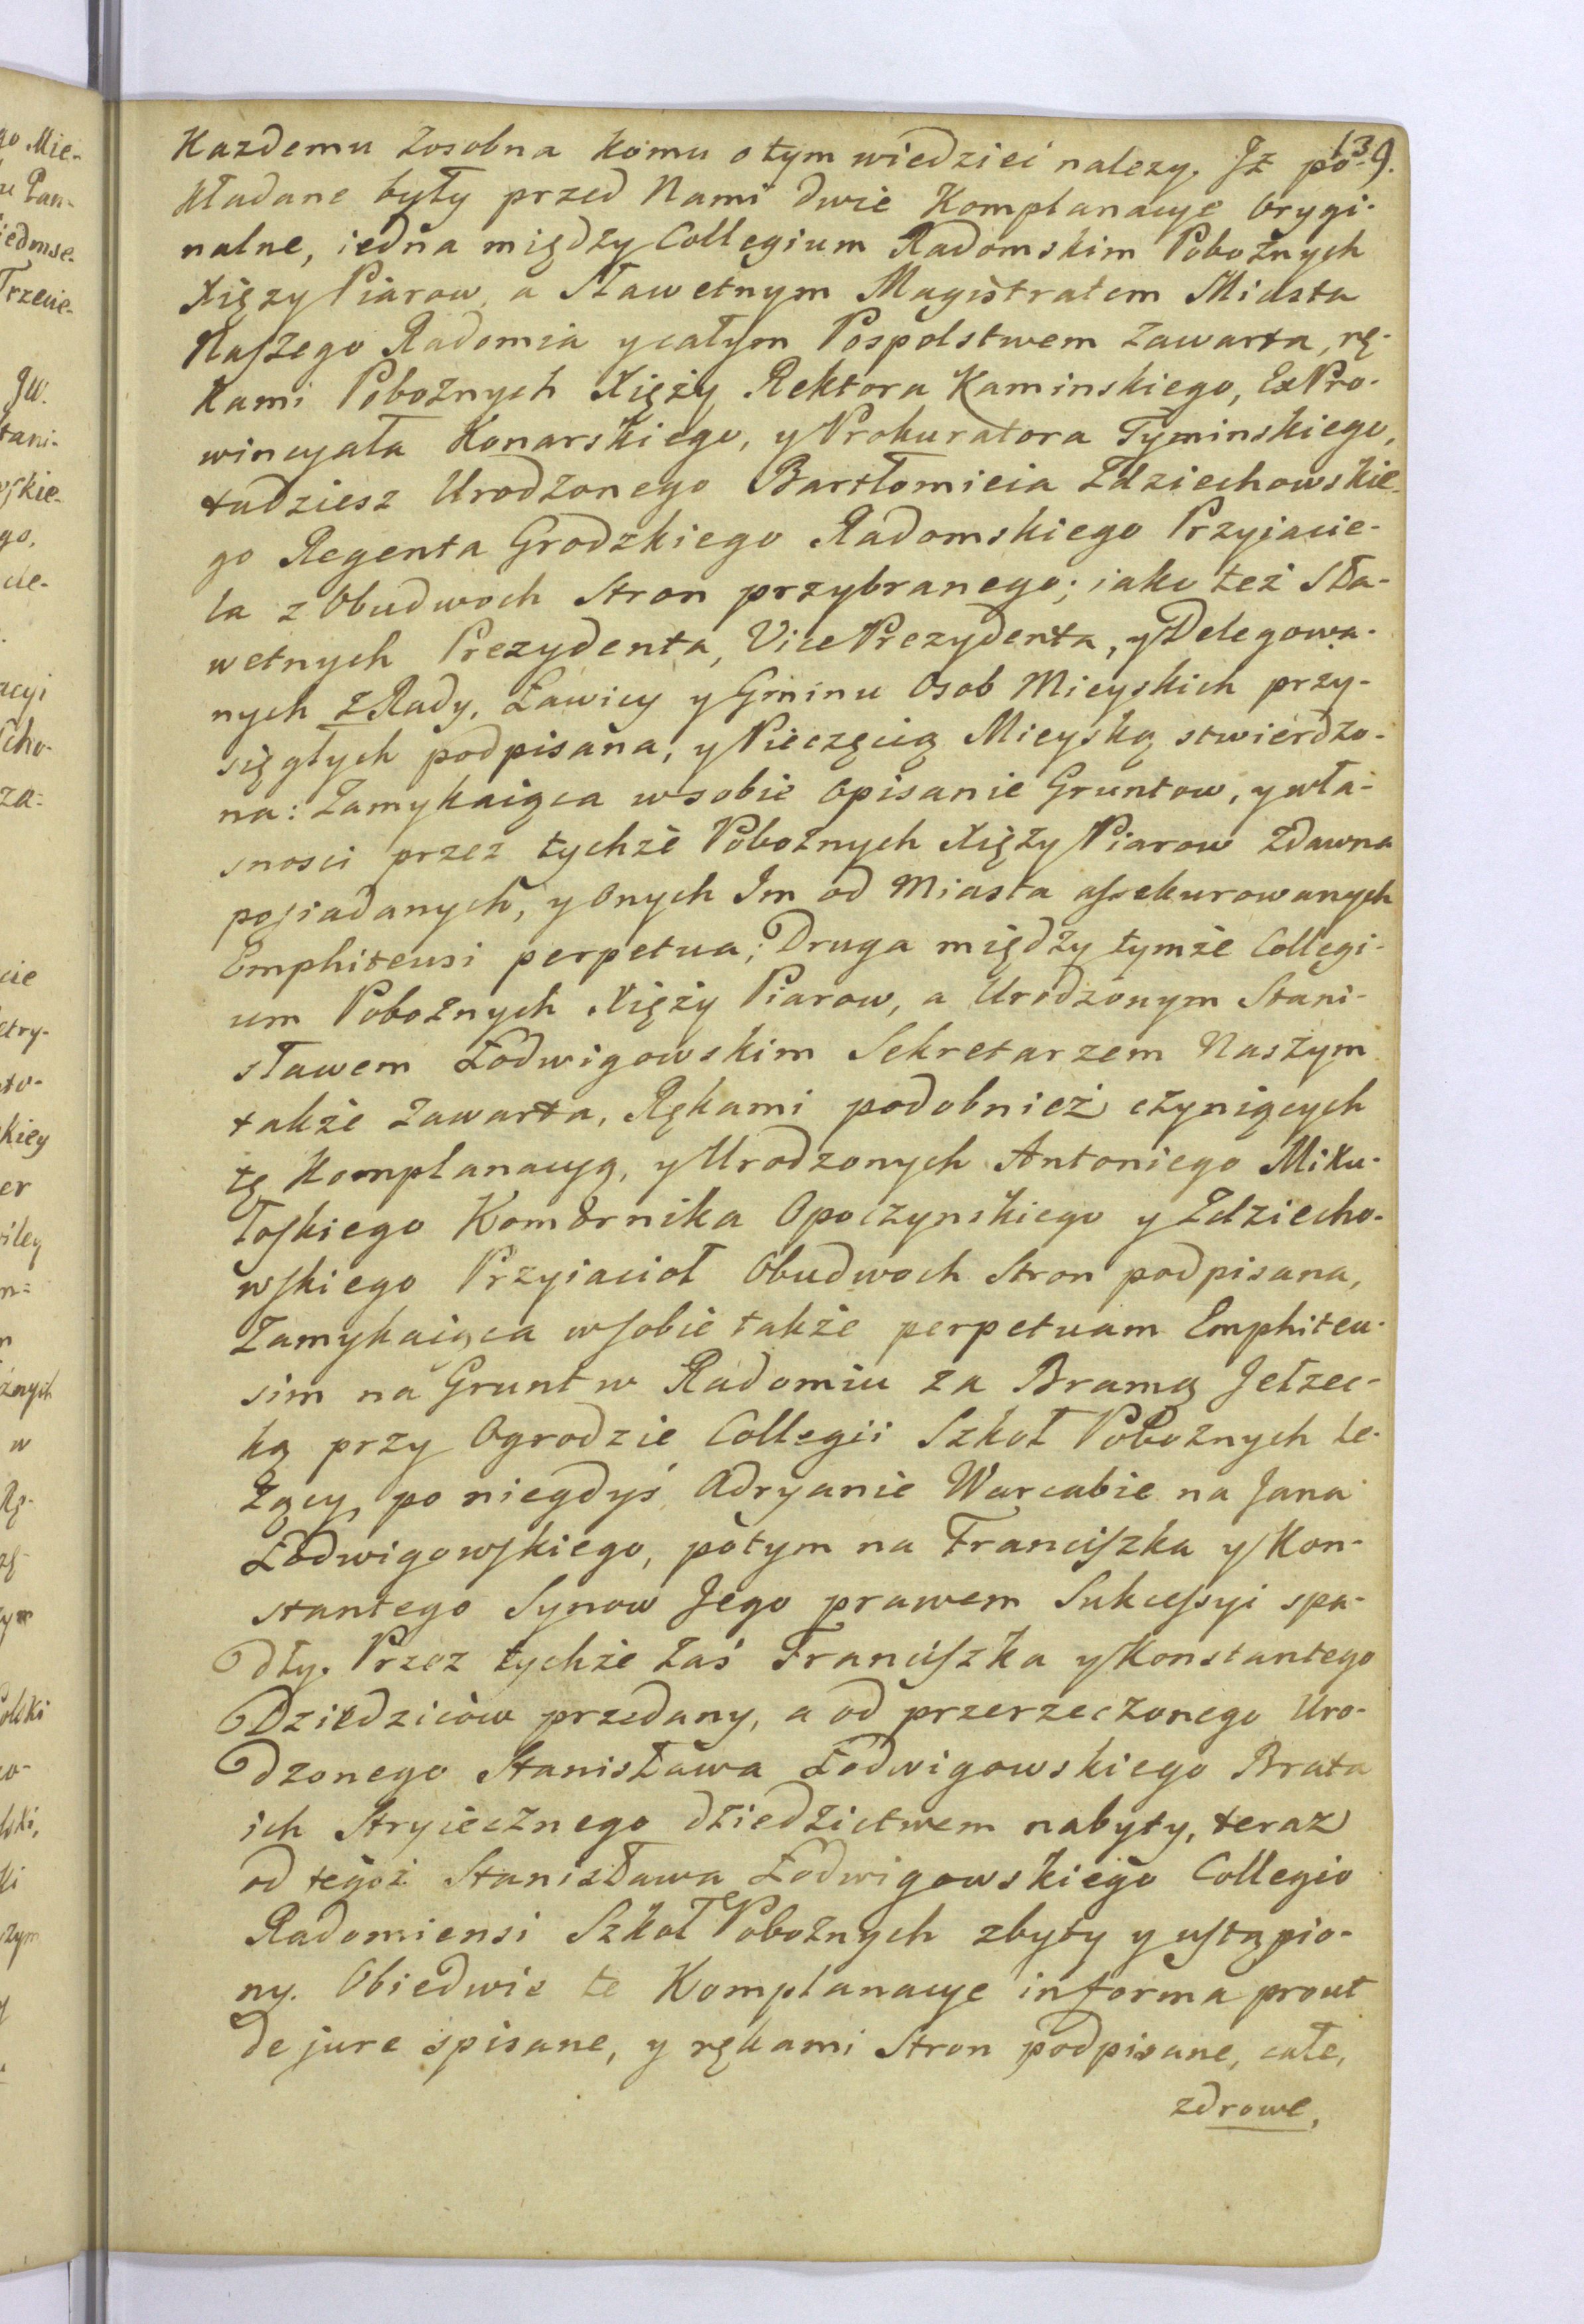 139.
Kazdemu Zosobna komu o tym wiedzieć nalezy. Jż po-
kładane były przed Nami dwie Komplanacye Orygi-
nalne, iedna między Collegium Radomskim Pobożnych
Xięzy Piarow, a Sławetnym Magistratem Miasta
Naszego Radomia y całym Pospolstwem zawarta, rę-
kami Pobożnych Xięży Rektora Kaminskiego, ExPro-
wincyała Konarskiego, y Prokuratora Tyminskiego,
tudziesz Urodzonego Bartłomieia Zdziechowskie-
go Regenta Grodzkiego Radomskiego Przyiacie-
la z Obudwoch Stron przybranego; iako też Sła-
wetnych Prezydenta, Vice Prezydenta, y Delegowa-
nych z Rady, Ławicy y Gminu Osob Mieyskich przy-
sięgłych podpisana, y Pieczęcią Mieyską stwierdzo-
na: Zamykaiąca wsobie Opisanie Gruntow, y wła-
snosci przez tychże Pobożnych Xięży Piarow Zdawna
posiadanych, y Onych Im od Miasta assekurowanych
Emphiteusi perpetua; Druga między tymże Collegi-
um Pobożnych Xięży Piarow, a Urodzonym Stani-
sławem Łodwigowskim Sekretarzem Naszym
także Zawarta, Rękami podobnież czyniących
tę Komplanacyą, y Urodzonych Antoniego Miku-
łoskiego Komornika Opoczynskiego y Zdziecho-
wskiego Przyiacioł Obudwoch Stron podpisana,
Zamykaiąca wsobie także perpetuam Emphiteu-
sim na Grunt w Radomiu za Bramą Jełzec-
ką przy Ogrodzie Collegii Szkoł Pobożnych le-
żący, po niegdyś Adryanie Warcabie na Jana
Łodwigowskiego, potym na Franciszka y Kon-
stantego Synow Jego prawem Sukcessyi spa-
dły. Przez tychże zaś Franciszka y Konstantego
Dziedziców przedany, a od przerzeczonego Uro-
dzonego Stanisława Łodwigowskiego Brata
ich Stryiecznego dziedzictwem nabyty, teraz
od tegoż Stanisława Łodwigowskiego Collegio
Radomiensi Szkoł Pobożnych zbyty y ustąpio-
ny. Obiedwie te Komplanacye in forma prout
de jure spisane, y rękami Stron podpisane, całe,
zdrowe,